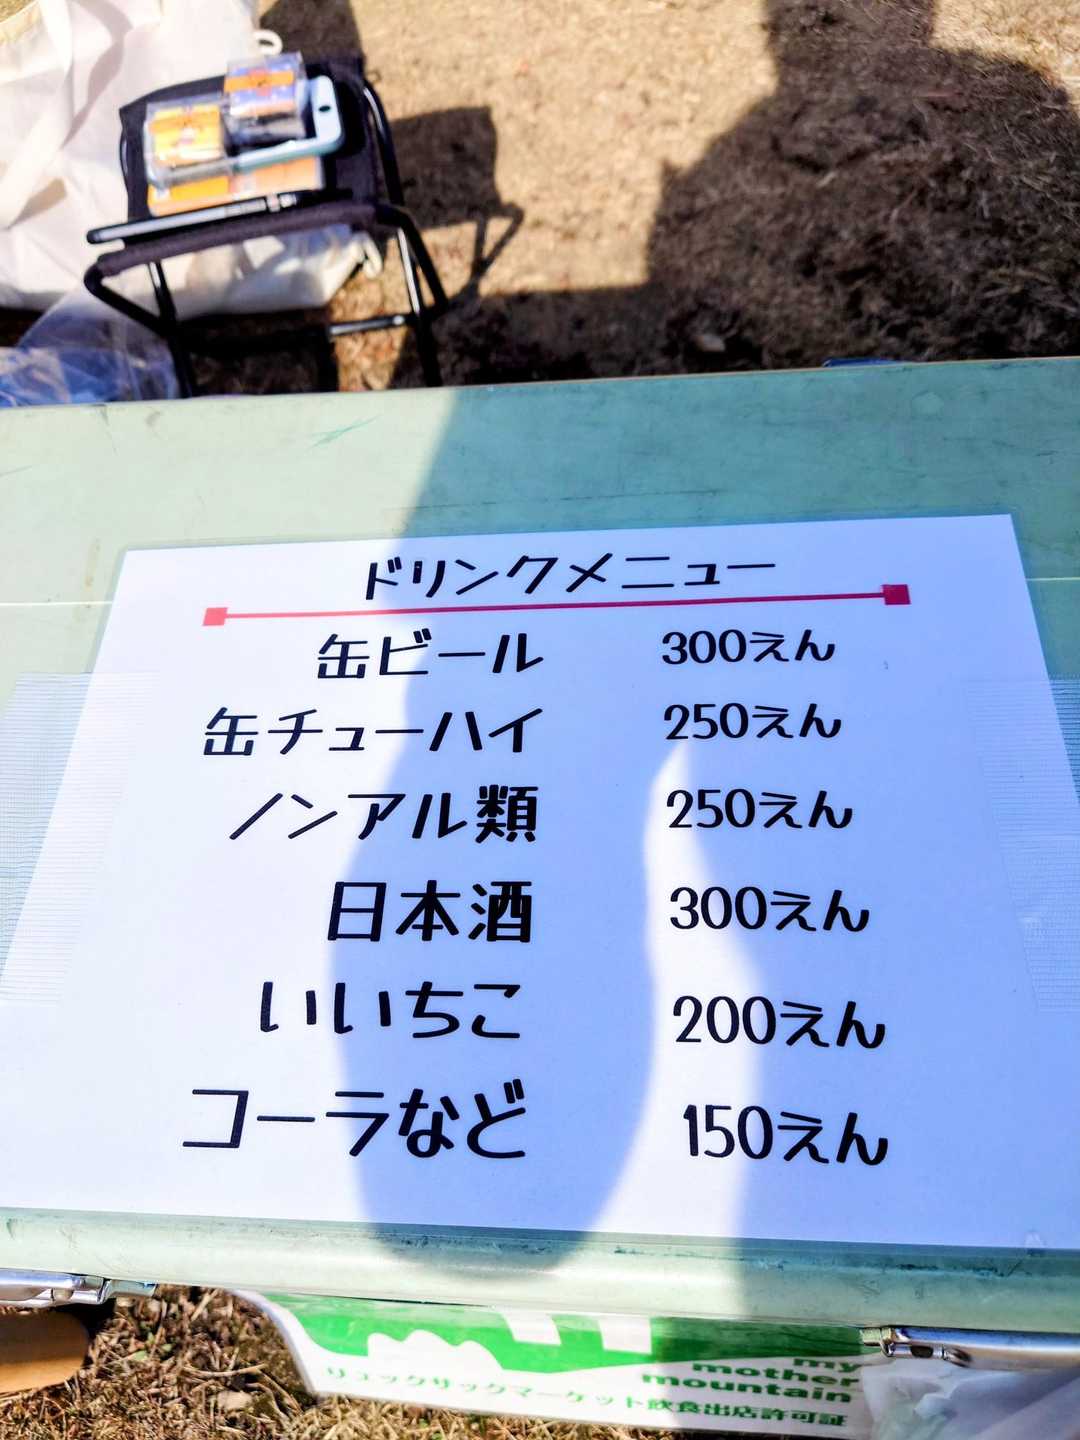 ドリンクメニュー
缶ビール 300えん
缶チューハイ 250えん
ノンアル類 250えん
日本酒 300えん
いいちこ 200えん
コーラなど 150えん
my
mother
mountain
リュックサックマーケット飲食出店許可証